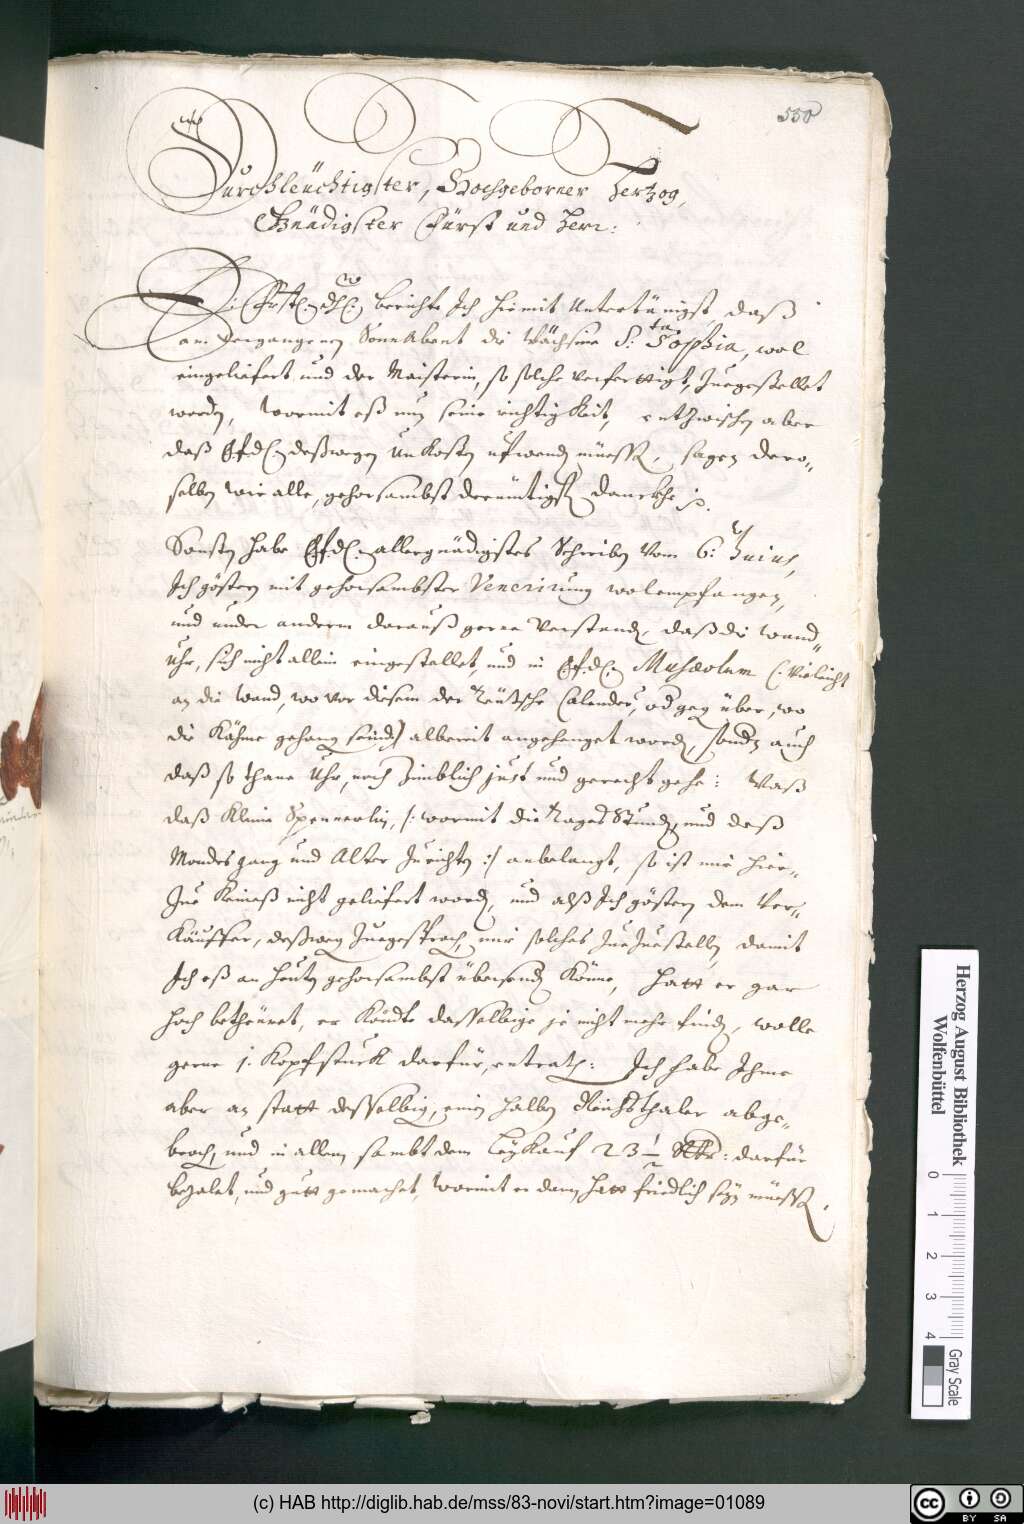 550
Durchleüchtigster, Hochgeborner Hertzog,
Gnädigster Fürst und Herr:
E: Frstl: Dl: berichte Ich hiemit Untertänigst, daß
am vergangenen SonnAbent die Wächsine S:ta Sophia, wol
eingeliefert und der Maisterin, so solche verferttigt, Zuegestellet
worden, wormit eß nun seine richtigkeit, entzwischen aber
daß E.f.dl. deßwegen UnKosten ufwenden müessen, sagen dero„
selben wir alle, gehorsambst demüetigsten danckh p.
Sonsten habe E.f.dl. allergnädigstes Schreiben vom 6: Junius,
Ich gösteren mit gehorsambster Venerirung wolempfangen,
und under anderm darauß gerne verstanden, daß die wand„
Uhr, sich nicht allein eingestellet, und in E.f.dl. Musaeolum (: vieleicht
an die wand, wo vor diesem der Teütsche Calender, od gegen über, wo
die Kähme gehang seind) albereit angehenget worden, sondern auch
daß so thane Uhr, noch Zimblich just und gerecht gehe: Waß
daß Kleine /: wormit die Tages Stunden, und deß
Mondes gang und Alter Zurichten :/ anbelangt, so ist mir hier„
Zue Keineß nicht geliefert worden, und alß Ich gösteren dem Ver„
Käuffer, deßwegen Zuegesproch, mir solches Zue Zuestellen, damit
Ich eß an heuten gehorsambst übersenden Könne, hatt er gar
hoch betheüret, er Köndte dasselbige je nicht mehr finden, wolle
gerne 1. Kopfstuck darfür, entrathen: Ich habe Ihme
aber an statt desselbigen, einen halben Reichsthaler abge„
brochen, und in allem sambt dem LeyKauf 23 1/2 Rthr: darfür
bezalet, und gutt gemachet, wormit er dann hatt friedlich sein müessen,
Herzog August Bibliothek
Wolfenbüttel
0 1 2 3 4
Gray Scale
(c) HAB http://diglib.hab.de/mss/83-novi/start.htm?image=01089
cc BY SA